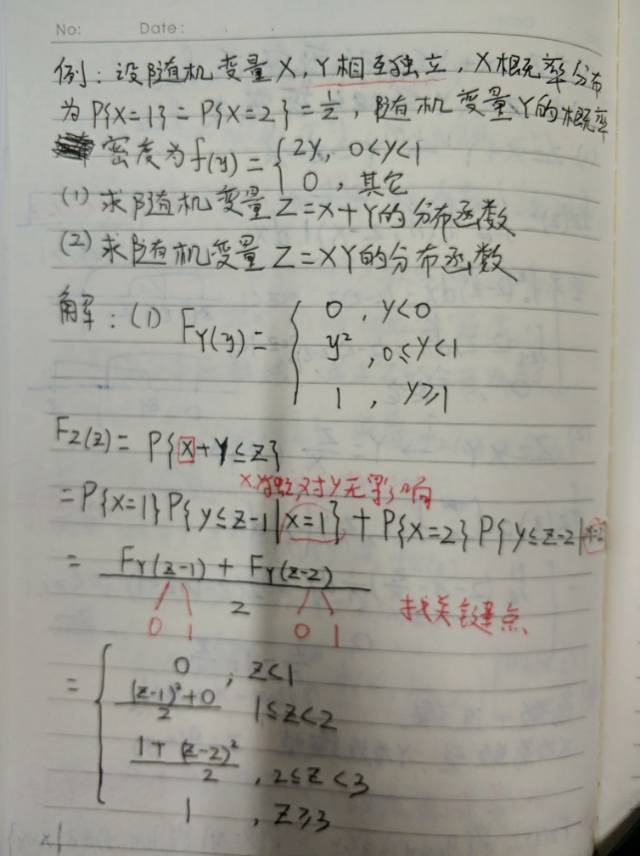 No:   Date:
例：设随机变量X,Y相互独立，X概率分布
为P{X=1}=P{X=2}=1/2，随机变量Y的概率
密度为f(y)={2y, 0<y<1
0，其它
(1) 求随机变量Z=X+Y的分布函数
(2) 求随机变量Z=XY的分布函数
解：(1) F_Y(y)={ 0，y<0
y²，0≤y<1
1，y≥1
F_Z(z)=P{X+Y≤z}
X,Y独立,对Y无影响
=P{X=1}P{Y≤z-1|X=1}+P{X=2}P{Y≤z-2|X=2}
= (F_Y(z-1)+F_Y(z-2))/2
0 1 0 1 找关键点
={ 0，z<1
((z-1)²+0)/2 1≤z<2
(1+(z-2)²)/2，2≤z<3
1，z≥3